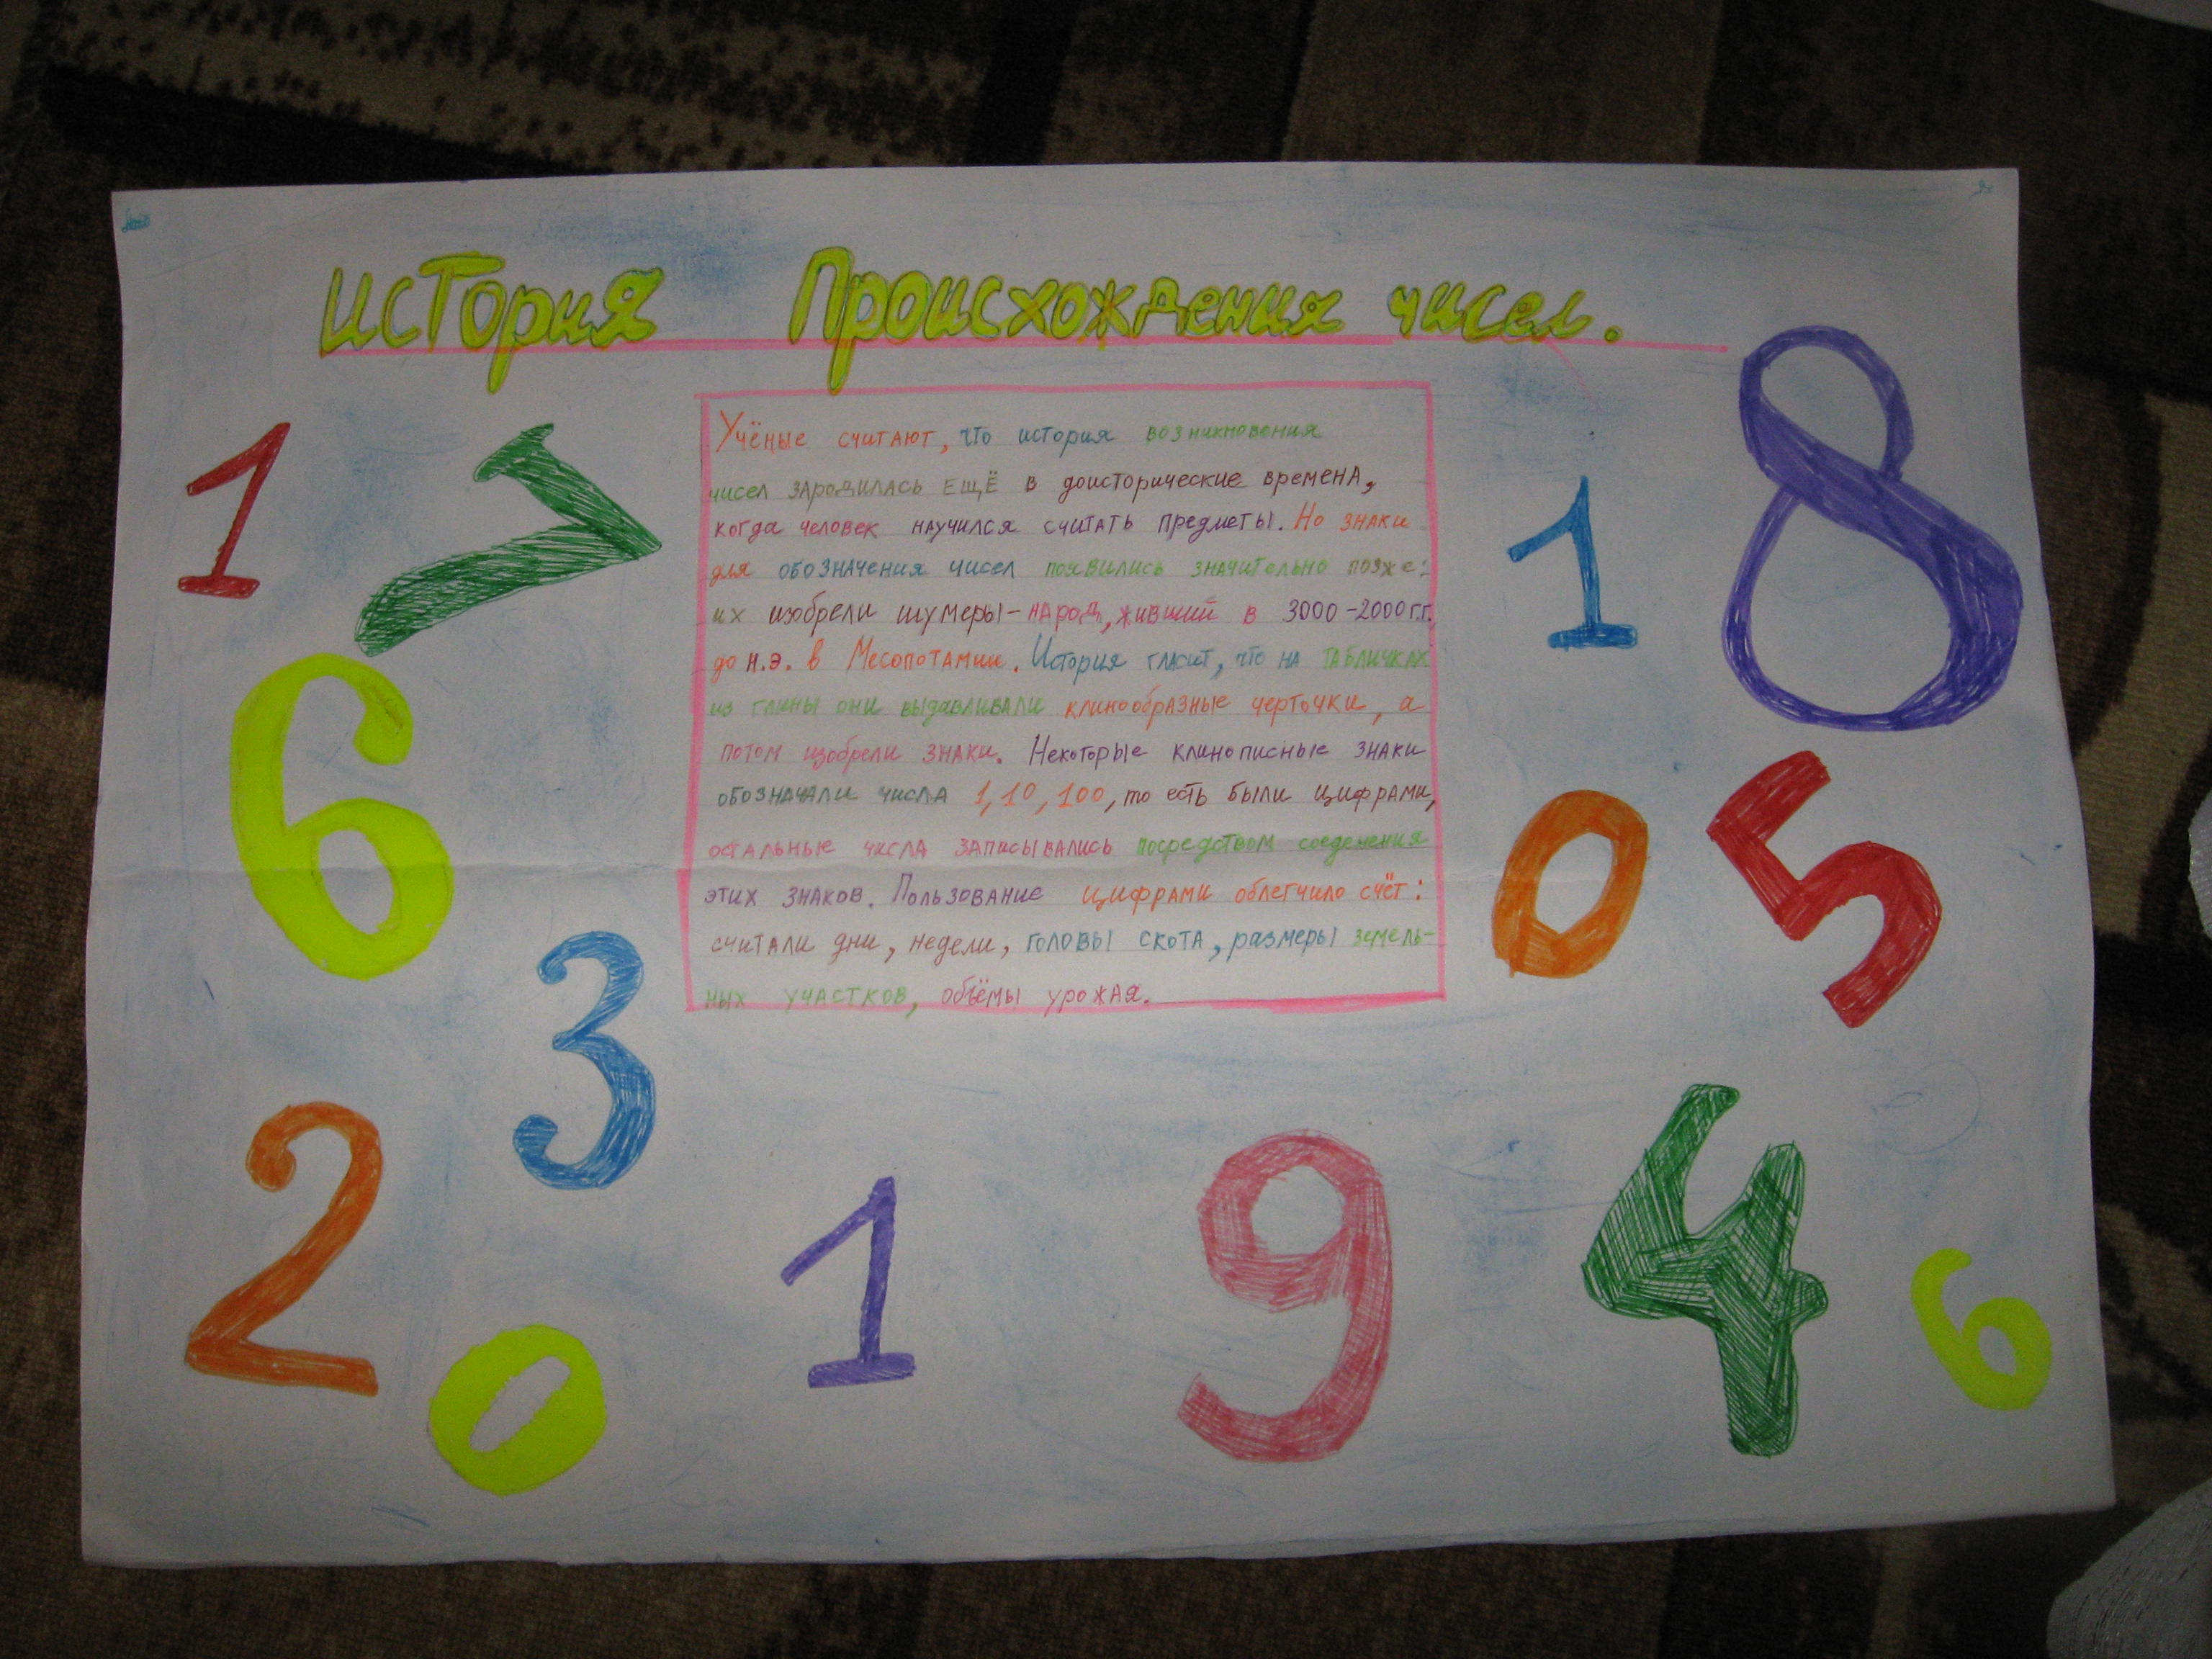 История Происхождения чисел.
Учёные считают, что история возникновения
чисел зародилась ещё в доисторические времена,
когда человек научился считать предметы. Но знаки
для обозначения чисел появились значительно позже:
их изобрели шумеры-народ, живший в 3000-2000 г.г.
до н.э. в Месопотамии. История гласит, что на табличках
из глины они выдавливали клинообразные черточки, а
потом изобрели знаки. Некоторые клинописные знаки
обозначали числа 1, 10, 100, то есть были цифрами,
остальные числа записывались посредством соеденения
этих знаков. Пользование цифрами облегчило счёт:
считали дни, недели, головы скота, размеры земель-
ных участков, объёмы урожая.
1
7
1
8
6
0
5
3
2
0
1
9
4
6